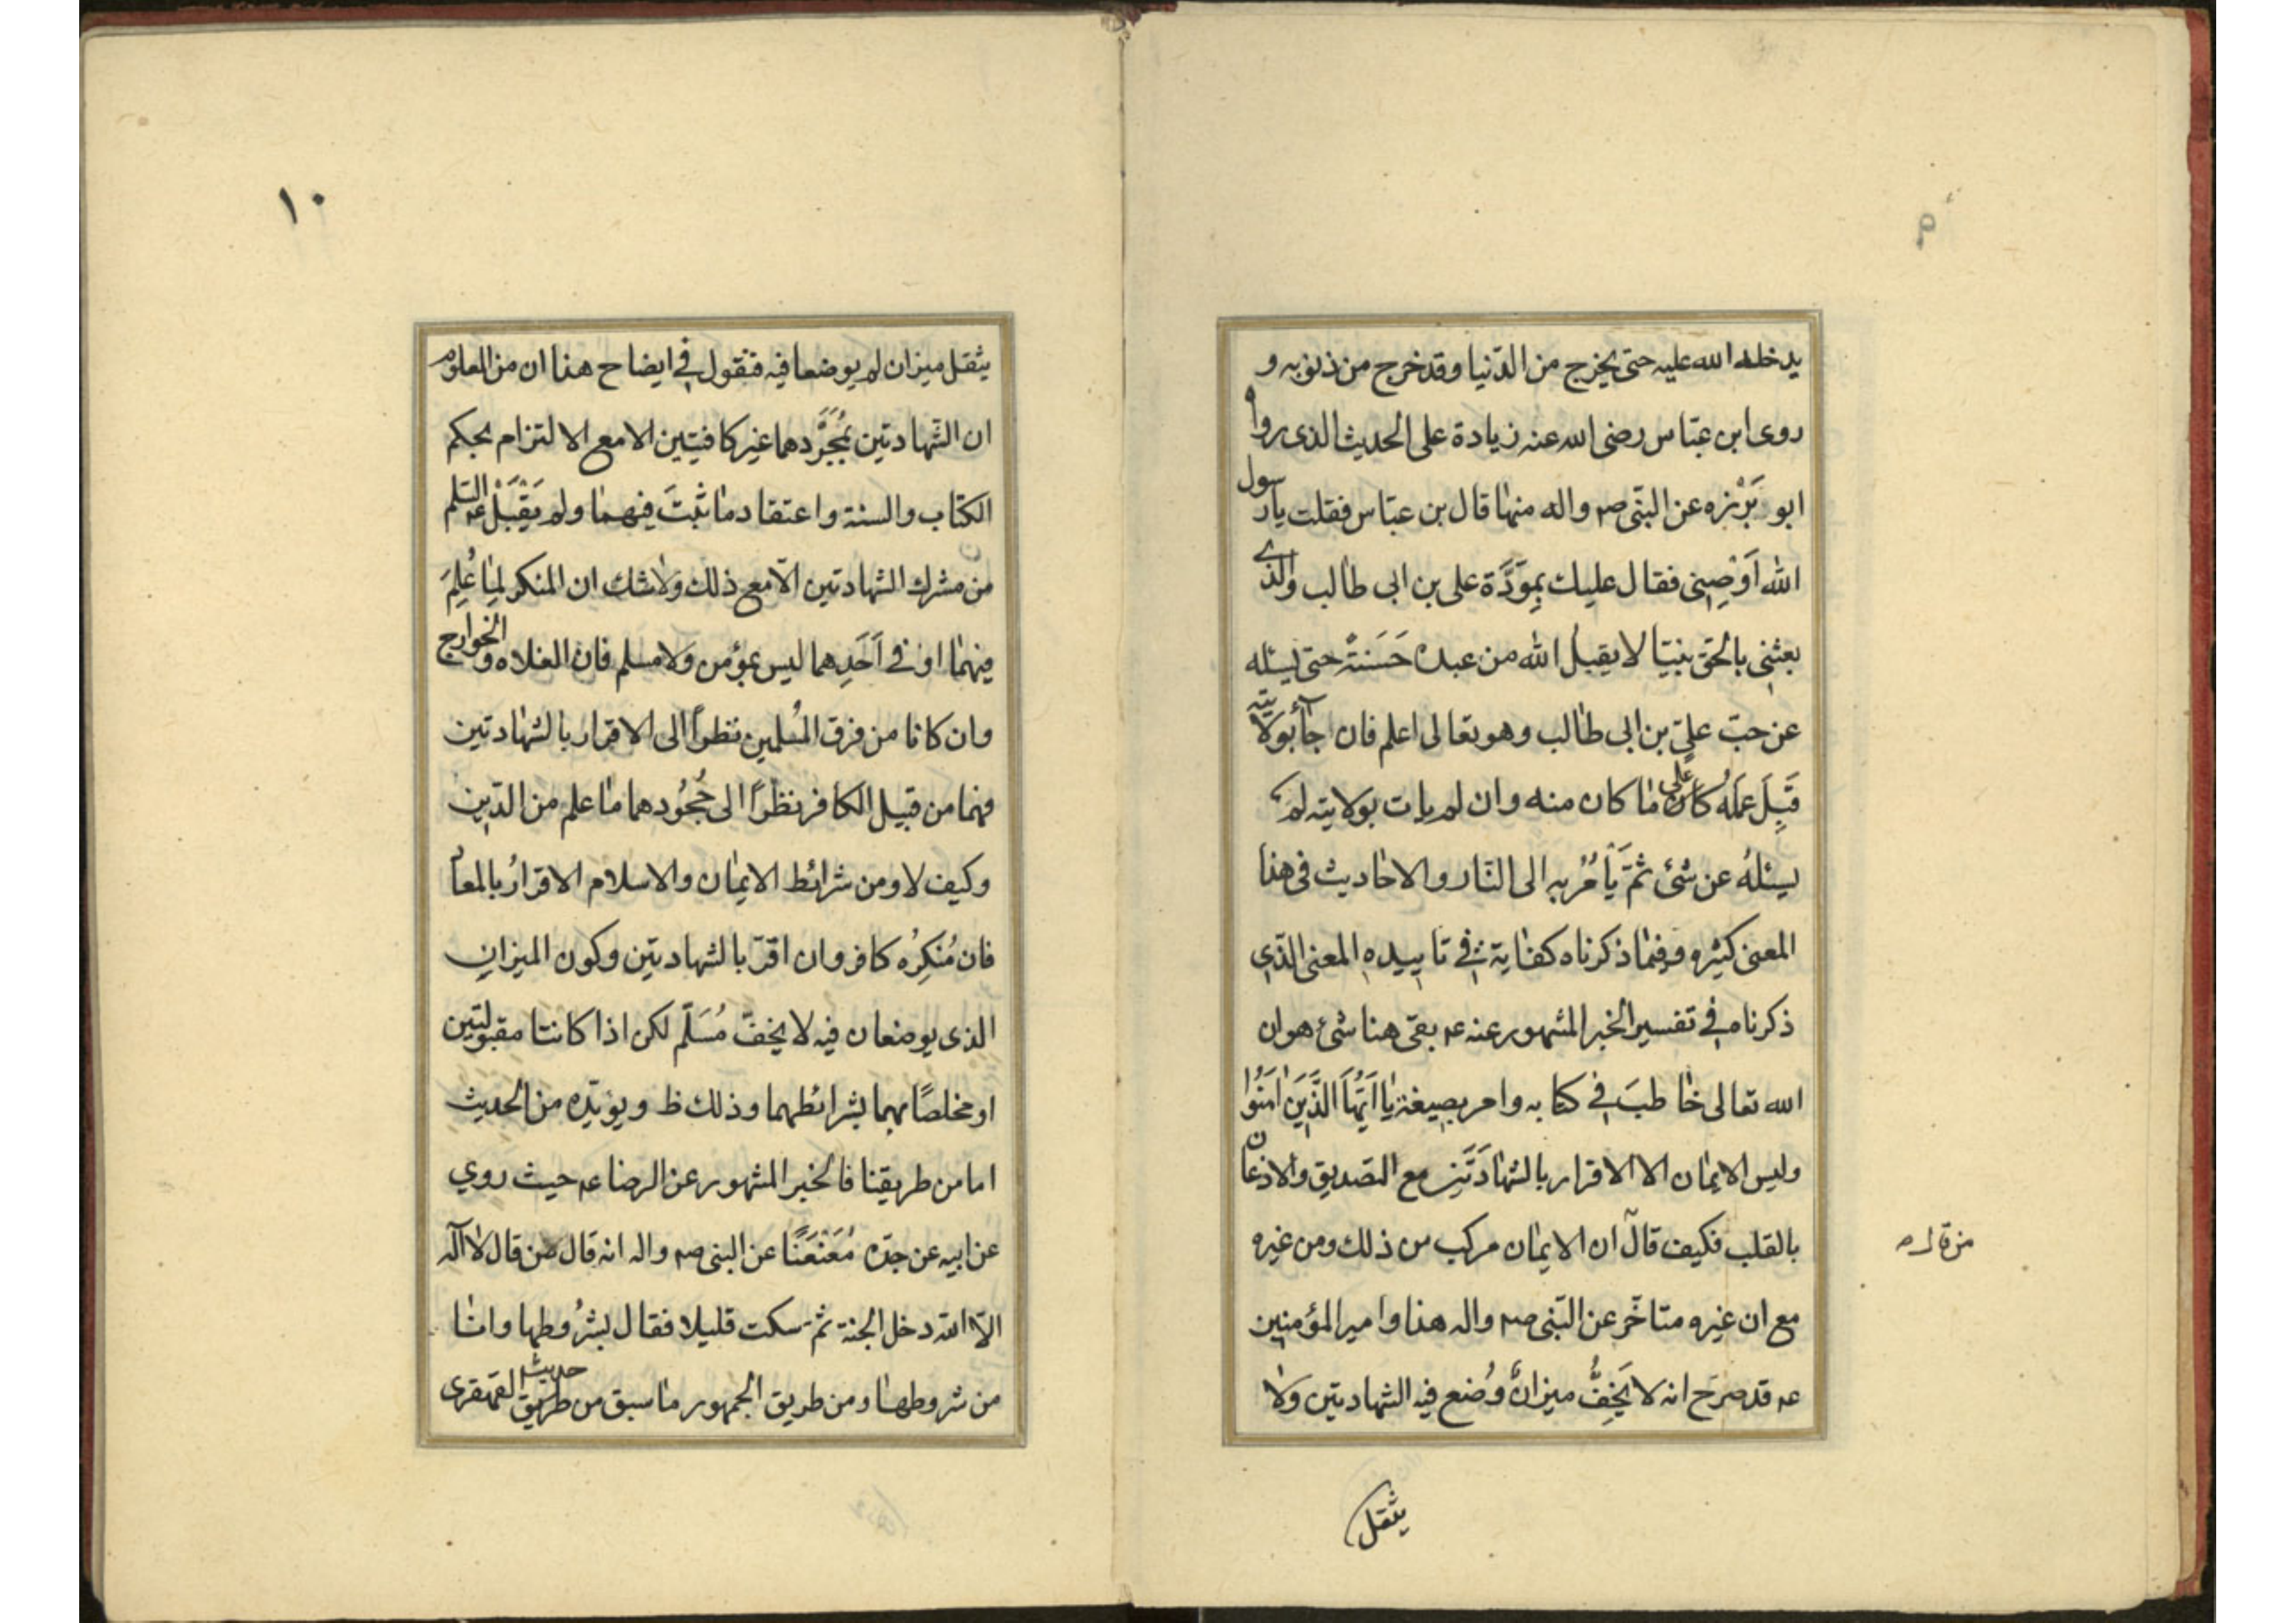 يدخله الله عليه حتى يخرج من الدّنيا وقد خرج من ذنوبه و
روى ابن عبّاس رضى الله عنه زيادة على الحديث الذى رواه
ابو بَرْزه عن النبّى صم واله منها قال بن عبّاس فقلت يا رسول
الله اَوْصِنى فقال عليك بِموَدَّة على بن ابى طالب والذے
بعثنى بالحق نبيّا لا يقبل الله من عبده حَسَنةً حتى يسئله
عن حبّ علىّ بن ابى طالب وهو تعالى اعلم فان جاء بولايته
قَبِلَ عمَلَه كان على ما كان منه وان لم يات بولايته لم
يسئلهُ عن شئ ثمّ يَاْمُرُ به الى النّار والاحاديث فى هذا
المعنى كثيره وفيما ذكرناه كفاية فى تاييده المعنى الّذي
ذكرناه فى تفسير الخبر المشهور عنه عم بقى هنا شئ هو ان
الله تعالى خاطبَ فى كتابه وامر بصيغة يا اَيّهاَ الَّذَينَ امَنُوا
وليس الايمان الا الاقرار بالشهادَتَين مع التصديق والاذعان
بالقلب فكيف قال ان الايمان مركب من ذلك ومن غيره
من قال م
مع ان غيره متاخّر عن النّبى صم واله هذا وامير المؤمنين
عم قد صرح انه لا يَخِفُّ ميزانٌ وُضع فيه الشهادتين ولا
يثقل
١٠
يثقل ميزان لم يوضعا فيه فنقول فى ايضاح هذا ان من المعلوم
ان الشّهادتين بمُجَرَّدهما غير كافيتين الا مع الالتزام بحكم
الكتاب والسنة واعتقاد ما ثبتَ فيهما ولم يَقْبَلْ عم
من مشرك الشهادتين الّا مع ذلك ولا شك ان المنكر لِمِا عُلِمَ
فيهما او فى اَحَدِهما ليس بمؤمن ولا مسلم فان الغلاه والخوارج
وان كانا من فرق المُسلمين نظراً الى الاقرار بالشهادتين
فهما من قبيل الكافر نظراً الى جُحُودهما ما علم من الدّين
وكيف لا ومن شرائط الايمان والاسلام الاقرارُ بالمعاد
فان مُنكِرُه كافر وان اقرّ بالشهادتين وكون الميزان
الذى يوضعان فيه لا يخفّ مُسَلّم لكن اذا كانتا مقبولتين
او مخلصًا بهما بشرائطهما وذلك ظ ويؤيّده من الحديث
اما من طريقنا فالخبر المشهور عن الرضا عم حيث روي
عن ابيه عن جدّه مُعَنْعَنًا عن النبى صم واله انه قال من قال لا اله
الّا الله دخل الجنة ثم سكت قليلا فقال بشرُوطها وانا
من شروطها ومن طريق الجمهور ما سبق من طريق حديث القهقرى